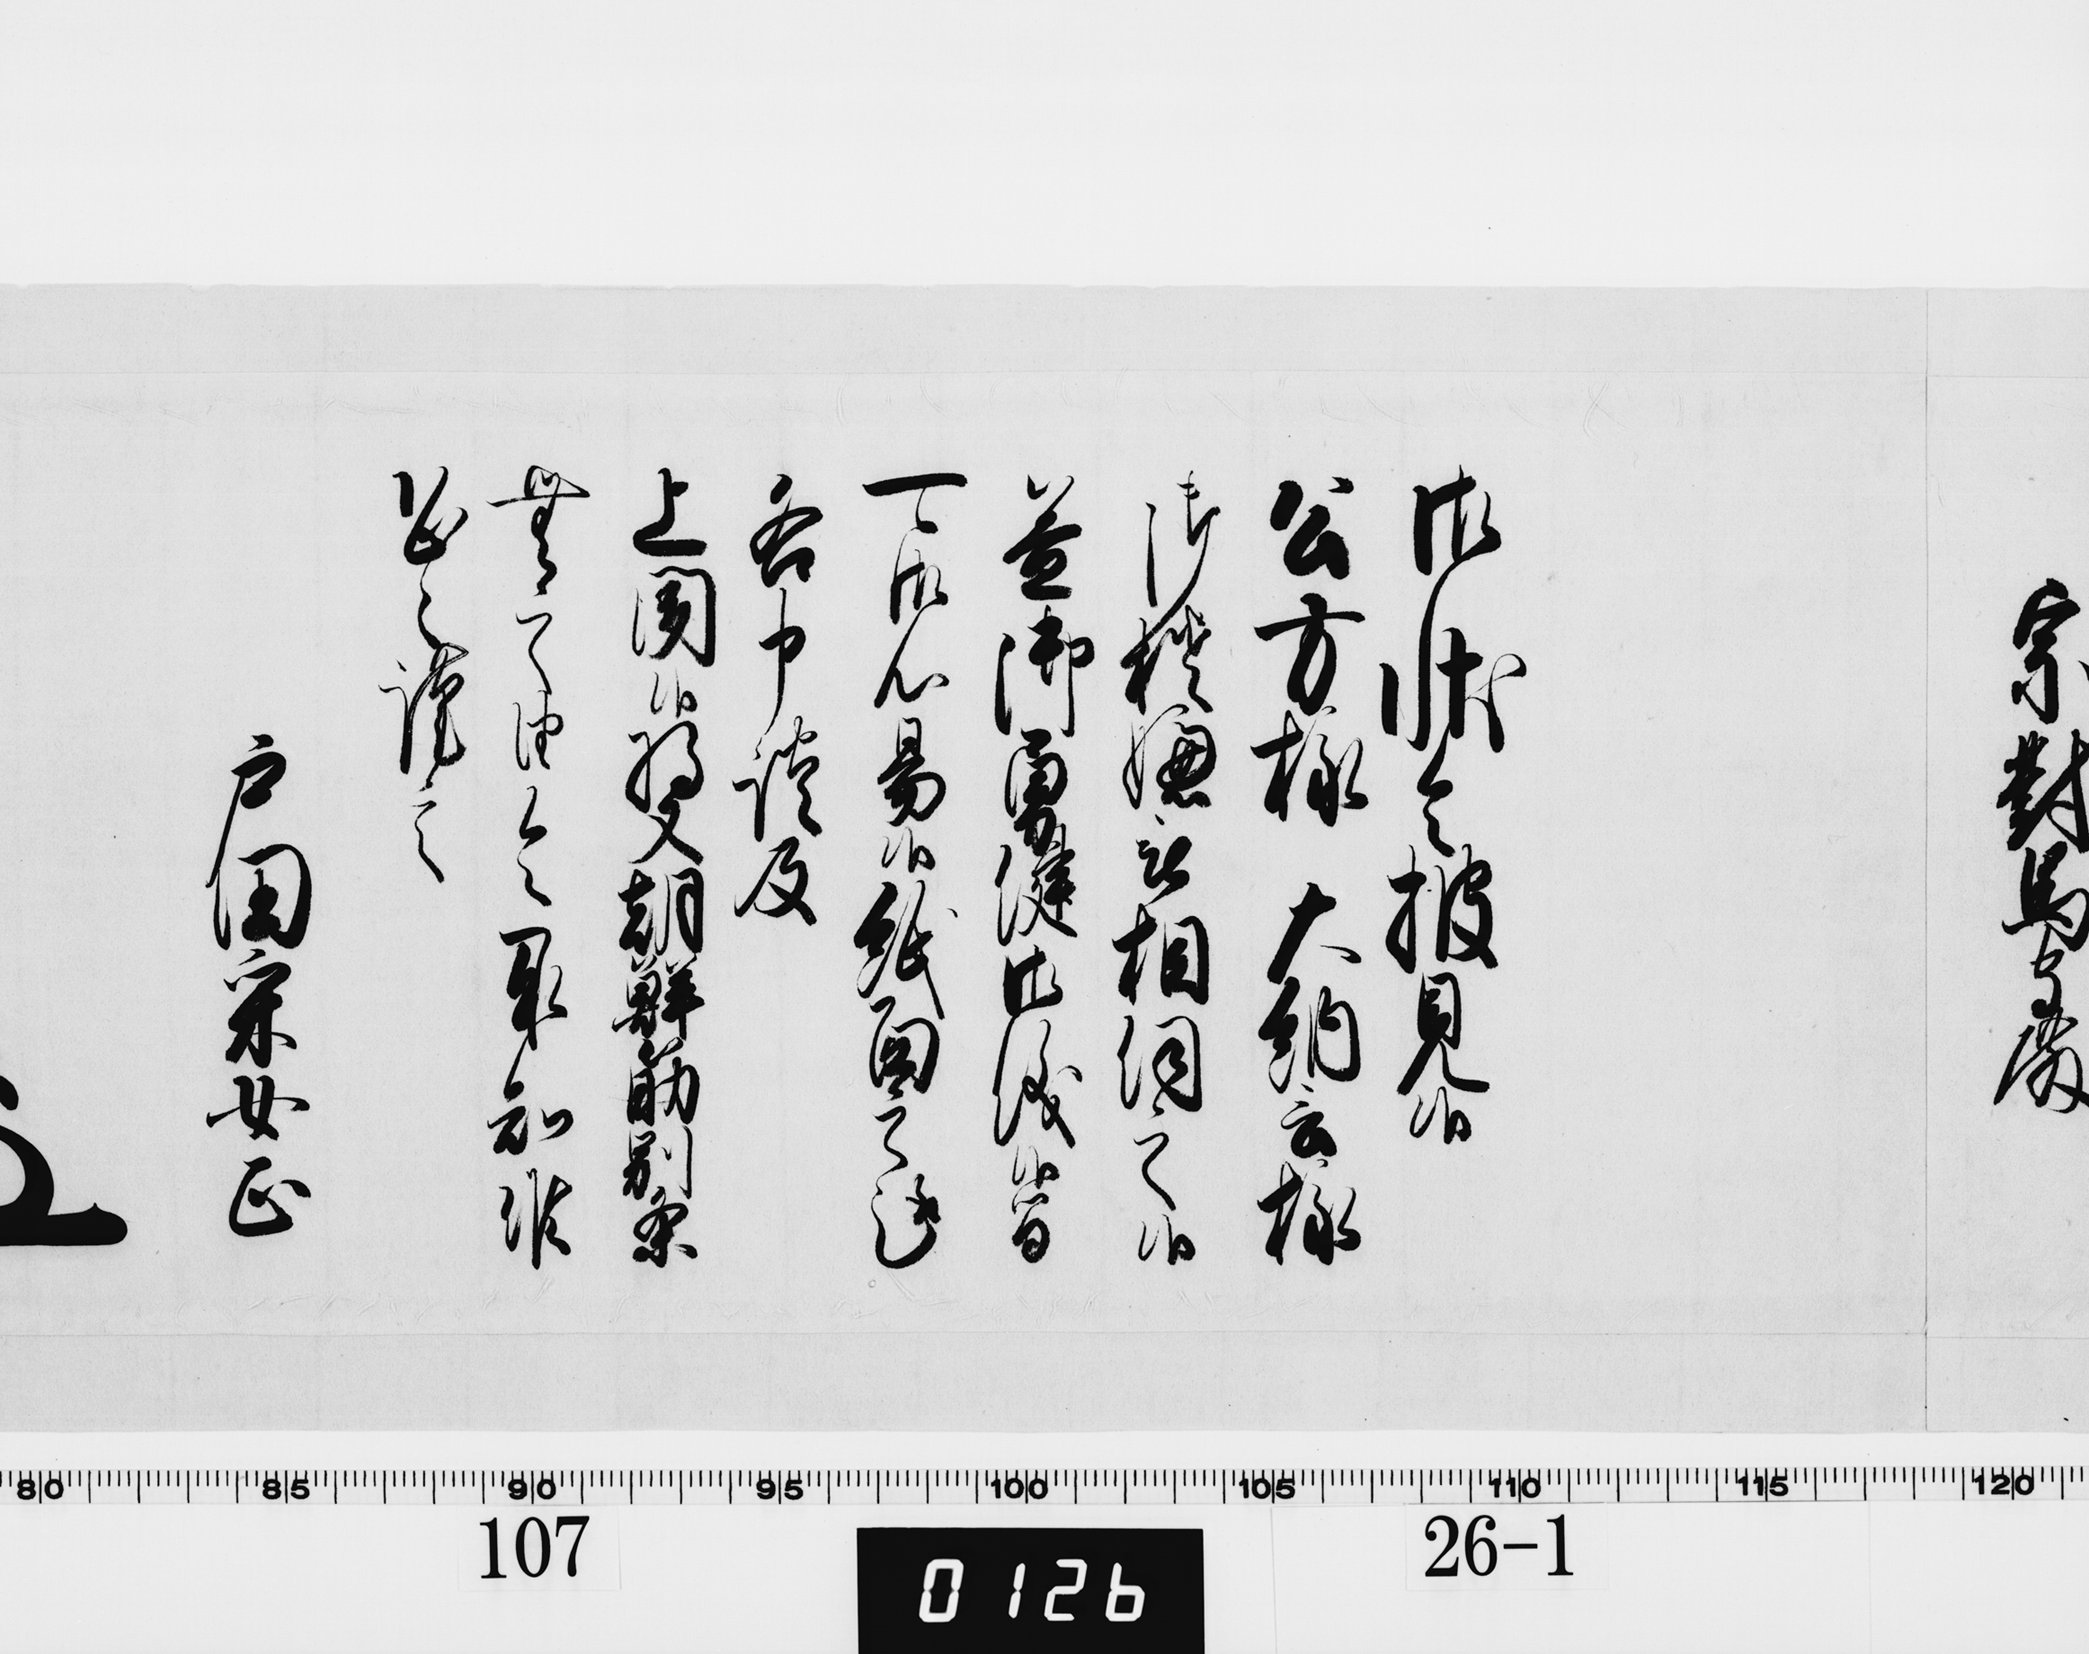 宗對馬守殿
御状令披見候
公方様 大納言様
御機嫌被相伺之候
益御勇健御儀候間
可御心易候紙面之趣
各申談及
上聞候将又朝鮮筋別条
無之由令承知候
恐々謹言
戸田采女正
80 85 90 95 100 105 110 115 120
107
0126
26-1